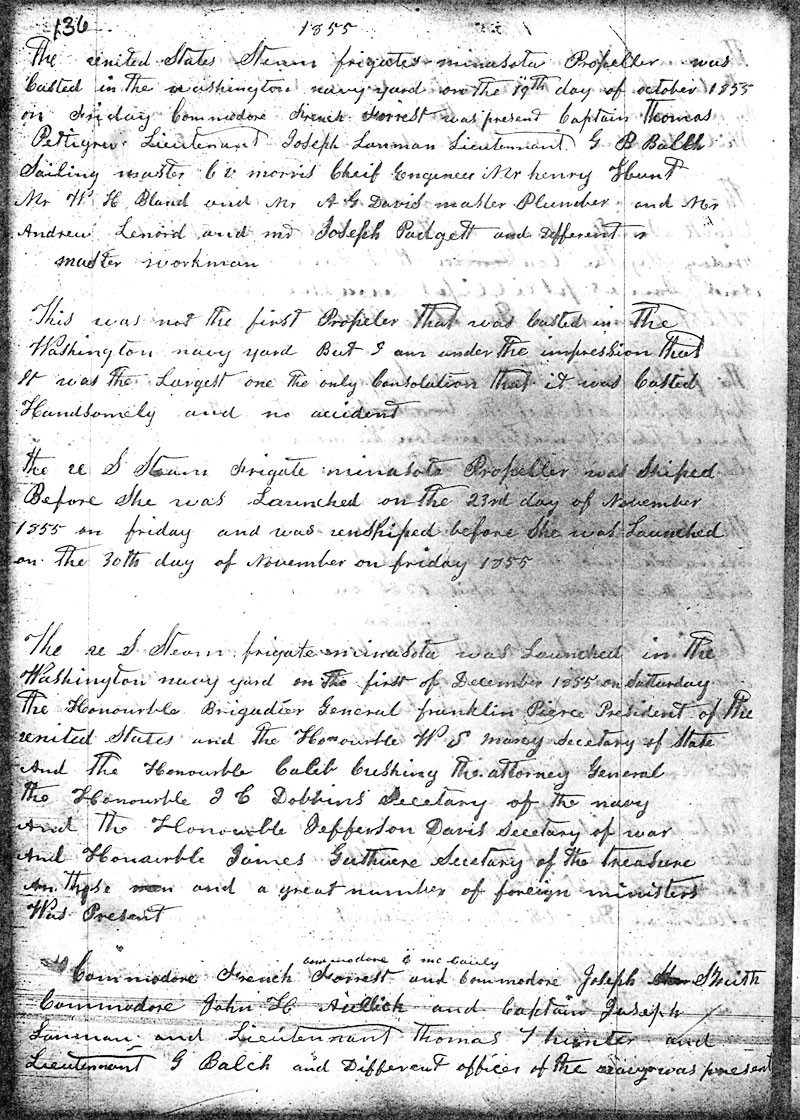 136 1855
The united States Steam frigates minasota Propeller was
Casted in the washington navy yard on the 19th day of october 1855
on Friday Commodore French Forrest was present Captain Thomas
Pettigrew Lieutenant Joseph Lanman Lieutennant G B Balch
Sailing master C V morris Cheif Engineer Mr henry Hunt
Mr W H Bland and Mr A G Davis master Plumber and Mr
Andrew Lenord and mr Joseph Padgett and Different
master workman
This was not the first Propeler That was Casted in The
Washington navy yard But I am under the impression that
It was the Largest one the only Consolation that it was Casted
Handsomely and no accident
the U S Steam Frigate minasota Propeller was Shiped
Before She was Launched on the 23rd day of November
1855 on friday and was unshiped before She was Launched
on the 30th day of November on friday 1855
The U S Steam frigate minasota was Launched in the
Washington navy yard on the first of December 1855 on Saturday
the Honourble Brigadier General franklin Pierce President of the
united States and the Honourble W S marcy Secetary of State
And the Honourble Caleb Cushing the attorney General
the Honourble J C Dobbins Secetary of the navy
And the Honourble Jefferson Davis Secetary of war
And Honourble James Guthere Secetary of the Treasure
an those men and a great number of foreign ministers
Was Present
commodore C mcCauly
Commodore French Forrest and Commodore Joseph Smith
Commodore John H Aullick and Captain Joseph
Lanman and Lieutennant Thomas T hunter and
Lieutennant G Balch and Different offices of the navy was present